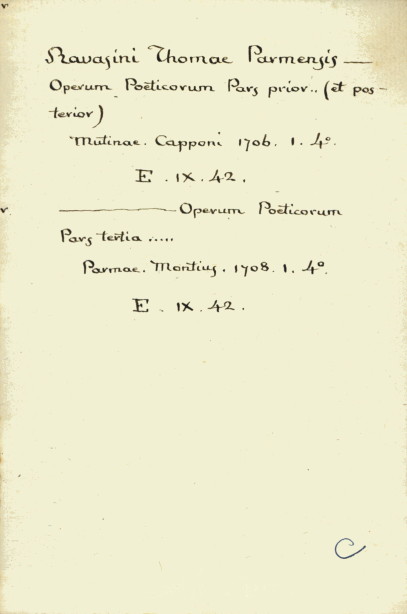 v
Ravasini Thomae Parmensis —
Operum Poëticorum Pars prior.. (et pos-
terior)
Mutinae. Capponi 1706. 1. 4º.
E. IX. 42.
v. ——— Operum Poëticorum
Pars tertia .....
Parmae. Montius. 1708. 1. 4º.
E. IX. 42.
C